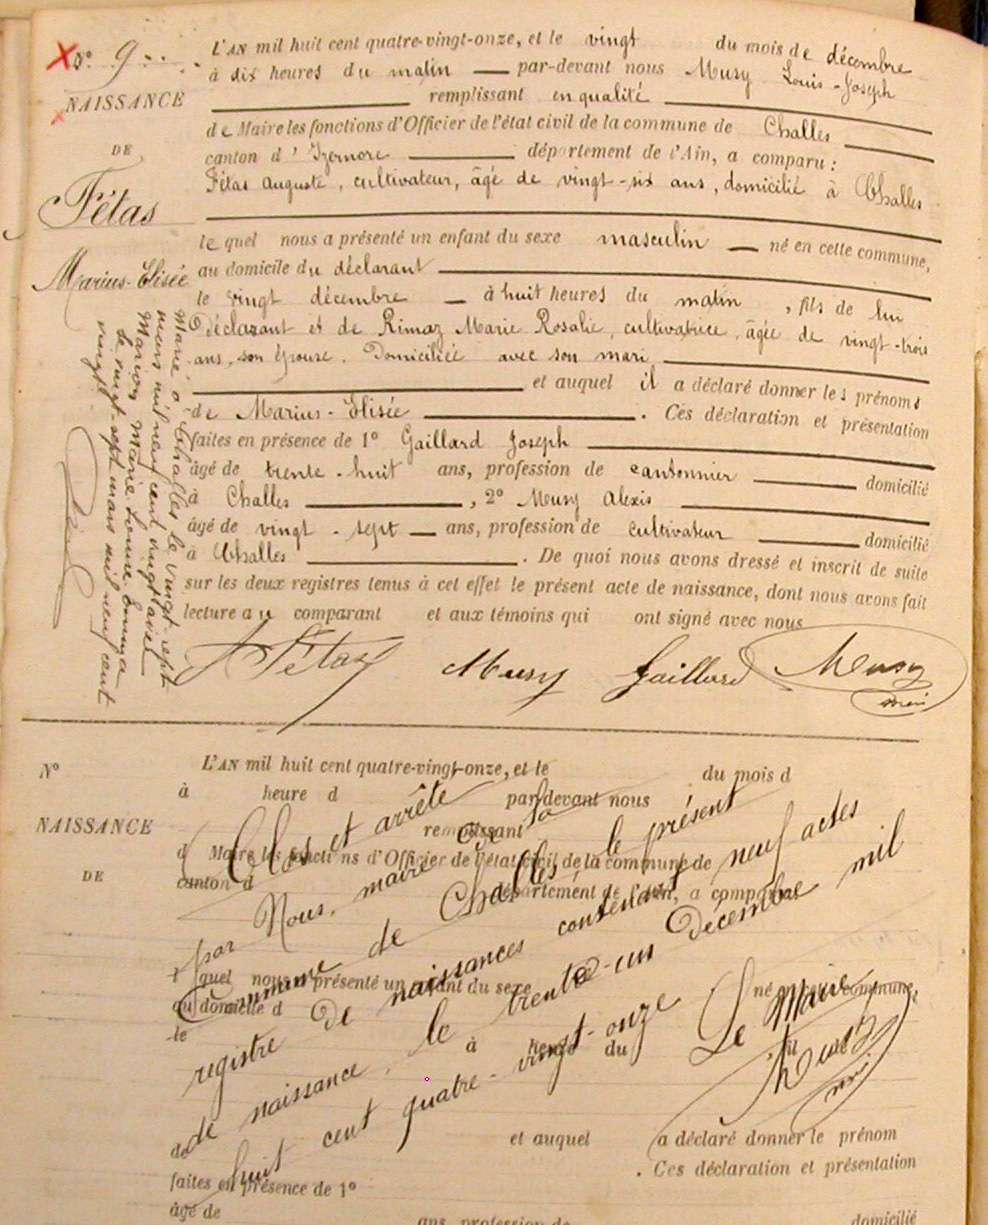 N° 9
NAISSANCE
DE
Fétas
Marius-Elisée
L'AN mil huit cent quatre-vingt-onze, et le vingt du mois de décembre
à dix heures du matin par-devant nous Musy Louis-Joseph
remplissant en qualité
de Maire les fonctions d'Officier de l'état civil de la commune de Challes
canton d'Izernore département de l'Ain, a comparu :
Fétas Auguste, cultivateur, âgé de vingt-six ans, domicilié à Challes
lequel nous a présenté un enfant du sexe masculin né en cette commune,
au domicile du déclarant
le vingt décembre à huit heures du matin, fils de lui
Déclarant et de Rimaz Marie Rosalie, cultivatrice, âgée de vingt-trois
ans, son épouse. Domiciliée avec son mari
et auquel il a déclaré donner les prénoms
de Marius-Elisée. Ces déclaration et présentation
faites en présence de 1° Gaillard Joseph
âgé de trente-huit ans, profession de cantonnier domicilié
à Challes, 2° Musy Alexis
âgé de vingt-sept ans, profession de cultivateur domicilié
à Challes. De quoi nous avons dressé et inscrit de suite
sur les deux registres tenus à cet effet le présent acte de naissance, dont nous avons fait
lecture au comparant et aux témoins qui ont signé avec nous
Marié à Challes le vingt-sept
mars mil neuf cent vingt avec
Marion Marie Louise
Le vingt-sept mars mil neuf cent
vingt
A Fétaz Musy Gaillard Musy
maire
N°
NAISSANCE
DE
L'AN mil huit cent quatre-vingt-onze, et le du mois d
à heure d par-devant nous
remplissant
d Maire les fonctions d'Officier de l'état civil de la commune de
canton d département de l'Ain, a comparu
quel nous a présenté un enfant du sexe né en cette commune,
au domicile d
le à heure du, fil
et auquel a déclaré donner le prénom
de. Ces déclaration et présentation
faites en présence de 1°
âgé de ans, profession de domicilié
Clos et arrêté
par Nous, maire de la
Commune de Challes, le présent
registre de naissances contenant neuf actes
de naissance, le trente-un Décembre mil
huit cent quatre-vingt-onze
Le Maire
Musy
maire